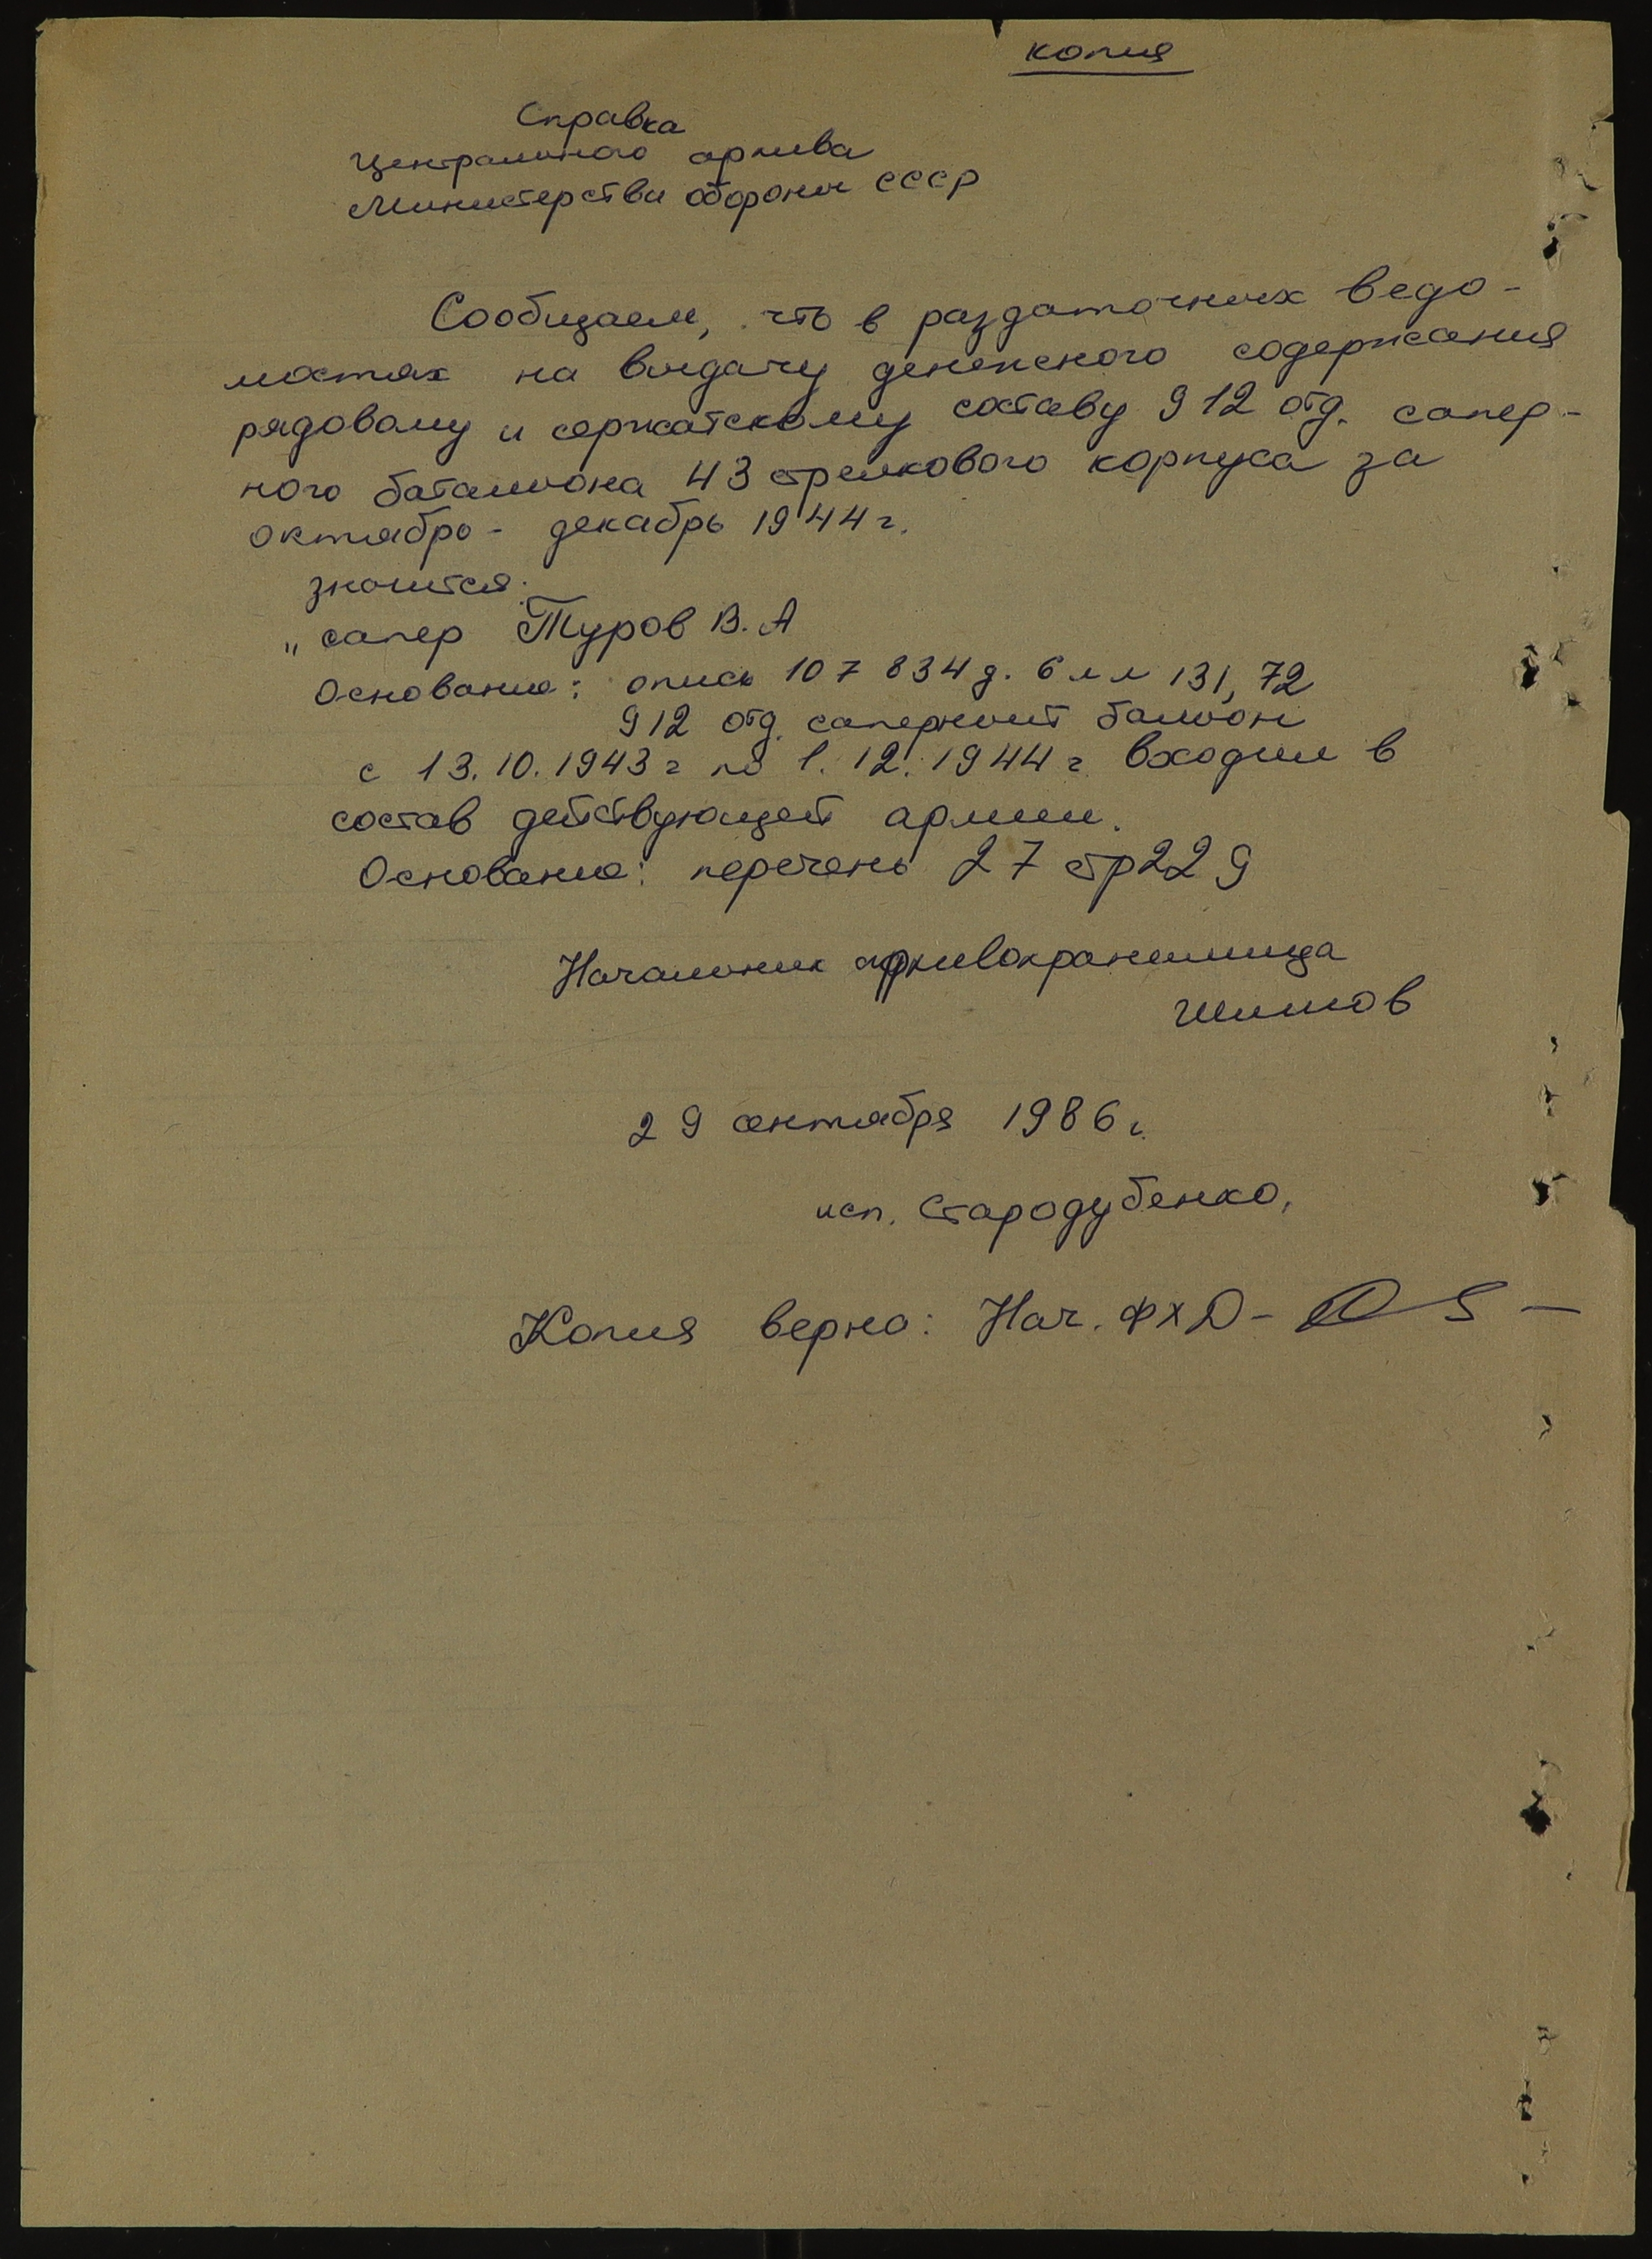 копия
Справка
Центрального архива
Министерства обороны СССР
Сообщаем, что в раздаточных ведо-
мостях на выдачу денежного содержания
рядовому и сержатскому составу 912 отд. сапер-
ного батальона 43 стрелкового корпуса за
октябрь - декабрь 1944 г.
значится:
„сапер Туров В. А
Основание: опись 107 834 д. 6 л л 131, 72
912 отд. саперный бальон
с 13.10.1943 г по 1.12.1944 г. входил в
состав действующей армии.
Основание: перечень 27 стр 229
Начальник архивохранилища
29 сентября 1986 г.
исп. Стародубенко,
Копия верна: Нач. ФХД -